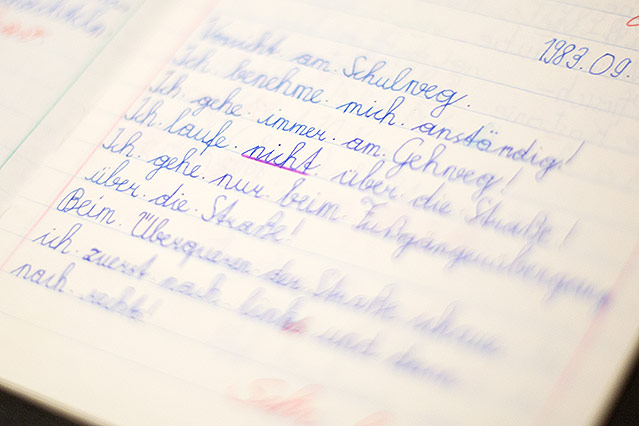 1983.09.
Vorsicht am Schulweg.
Ich benehme mich anständig!
Ich gehe immer am Gehweg!
Ich laufe nicht über die Straße!
Ich gehe nur beim Fußgängerübergang
über die Straße!
Beim Überqueren der Straße schaue
ich zuerst nach links und dann
nach recht!